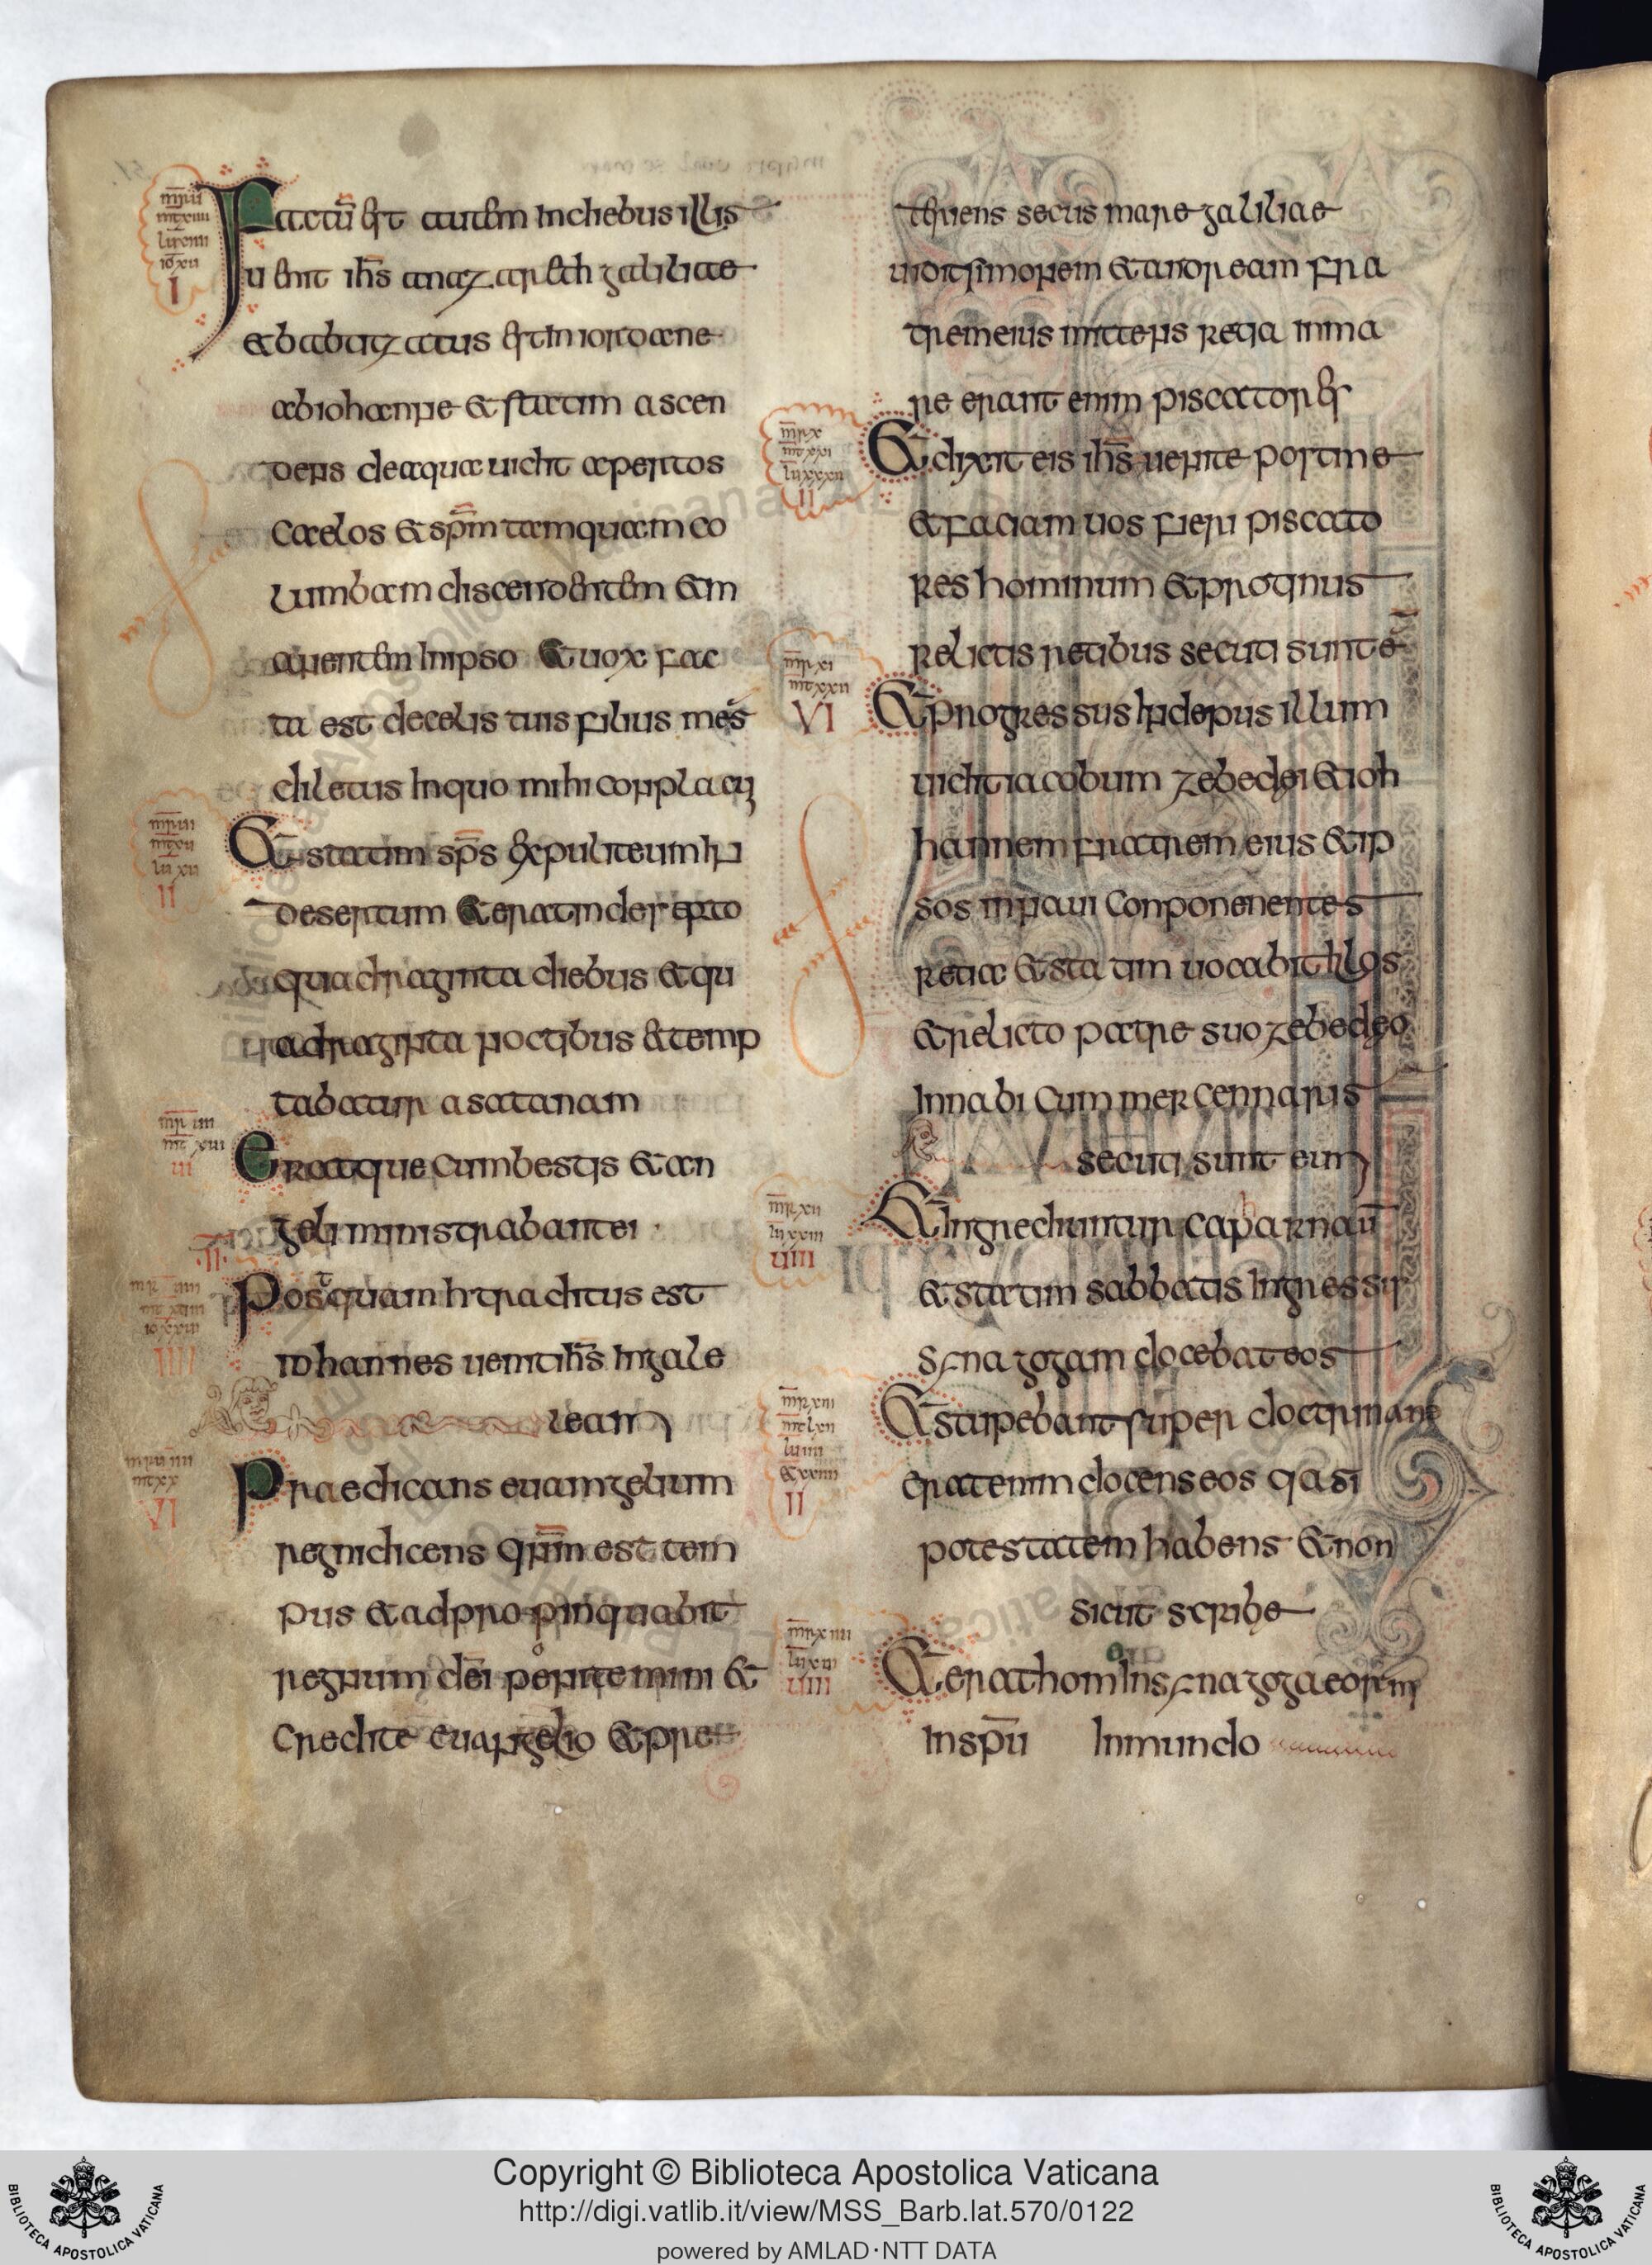 Factū est autem in diebus illis
uenit ih̄s anazareth galiliae
& babtizatus est in iordane
ab iohanne & statim ascen
dens de aqua uidit apertos
caelos & sp̄m tamquam co
lumbam discendentem & m
anentem in ipso & uox fac
ta est de celis tu is filius me᷒s
diletus in quo mihi conplacui
& statim sp̄s expulit eum in
desertum & erat in deserto
quadraginta diebus & qu
adraginta noctibus & temp
tabatur a satanam
Eratque cum bestis & an
geli ministrabant ei
Postquam h traditus est
iohannes uenit ih̄s in gale
leam
Praedicans euamgelium
regni dicens qn̄m est tem
pus & adpropinquabit
regnum dei penitemini &
credite euangelio & pre
teriens secus mare galiliae
uidit simonem & andream fra
trem eius mittens retia in ma
re erant enim piscatores
& dixit eis ih̄s uenite post me
& faciam uos fieri piscato
res hominum & protinus
relictis retibus secuti sunt e̅
& progressus inde pus illum
uidit iacobum zebedei & ioh
hannem fratrem eius & ip
sos in naui conponenentes
retia & statim uocabit illos
& relicto patre suo zebedeo
in nabi cum mercennaris
secuti sunt eum
& ingrediuntur capa rnaū
& statim sabbatis ingressir
synagogam docebat eos
& stupebant super doctrinam e
erat enim docens eos qasi
potestatem habens & non
sicut scribe
& erat homo in synagoga eorum
in sp̄u inmundo
mr̄ x
mt̄ xxi
lu xxxii
II
mr̄ xi
mt̄ xxii
VI
mr̄ xii
lu xxiii
uiii
Copyright © Biblioteca Apostolica Vaticana
http://digi.vatlib.it/view/MSS_Barb.lat.570/0122
powered by AMLAD·NTT DATA
BIBLIOTECA APOSTOLICA VATICANA
BIBLIOTECA APOSTOLICA VATICANA